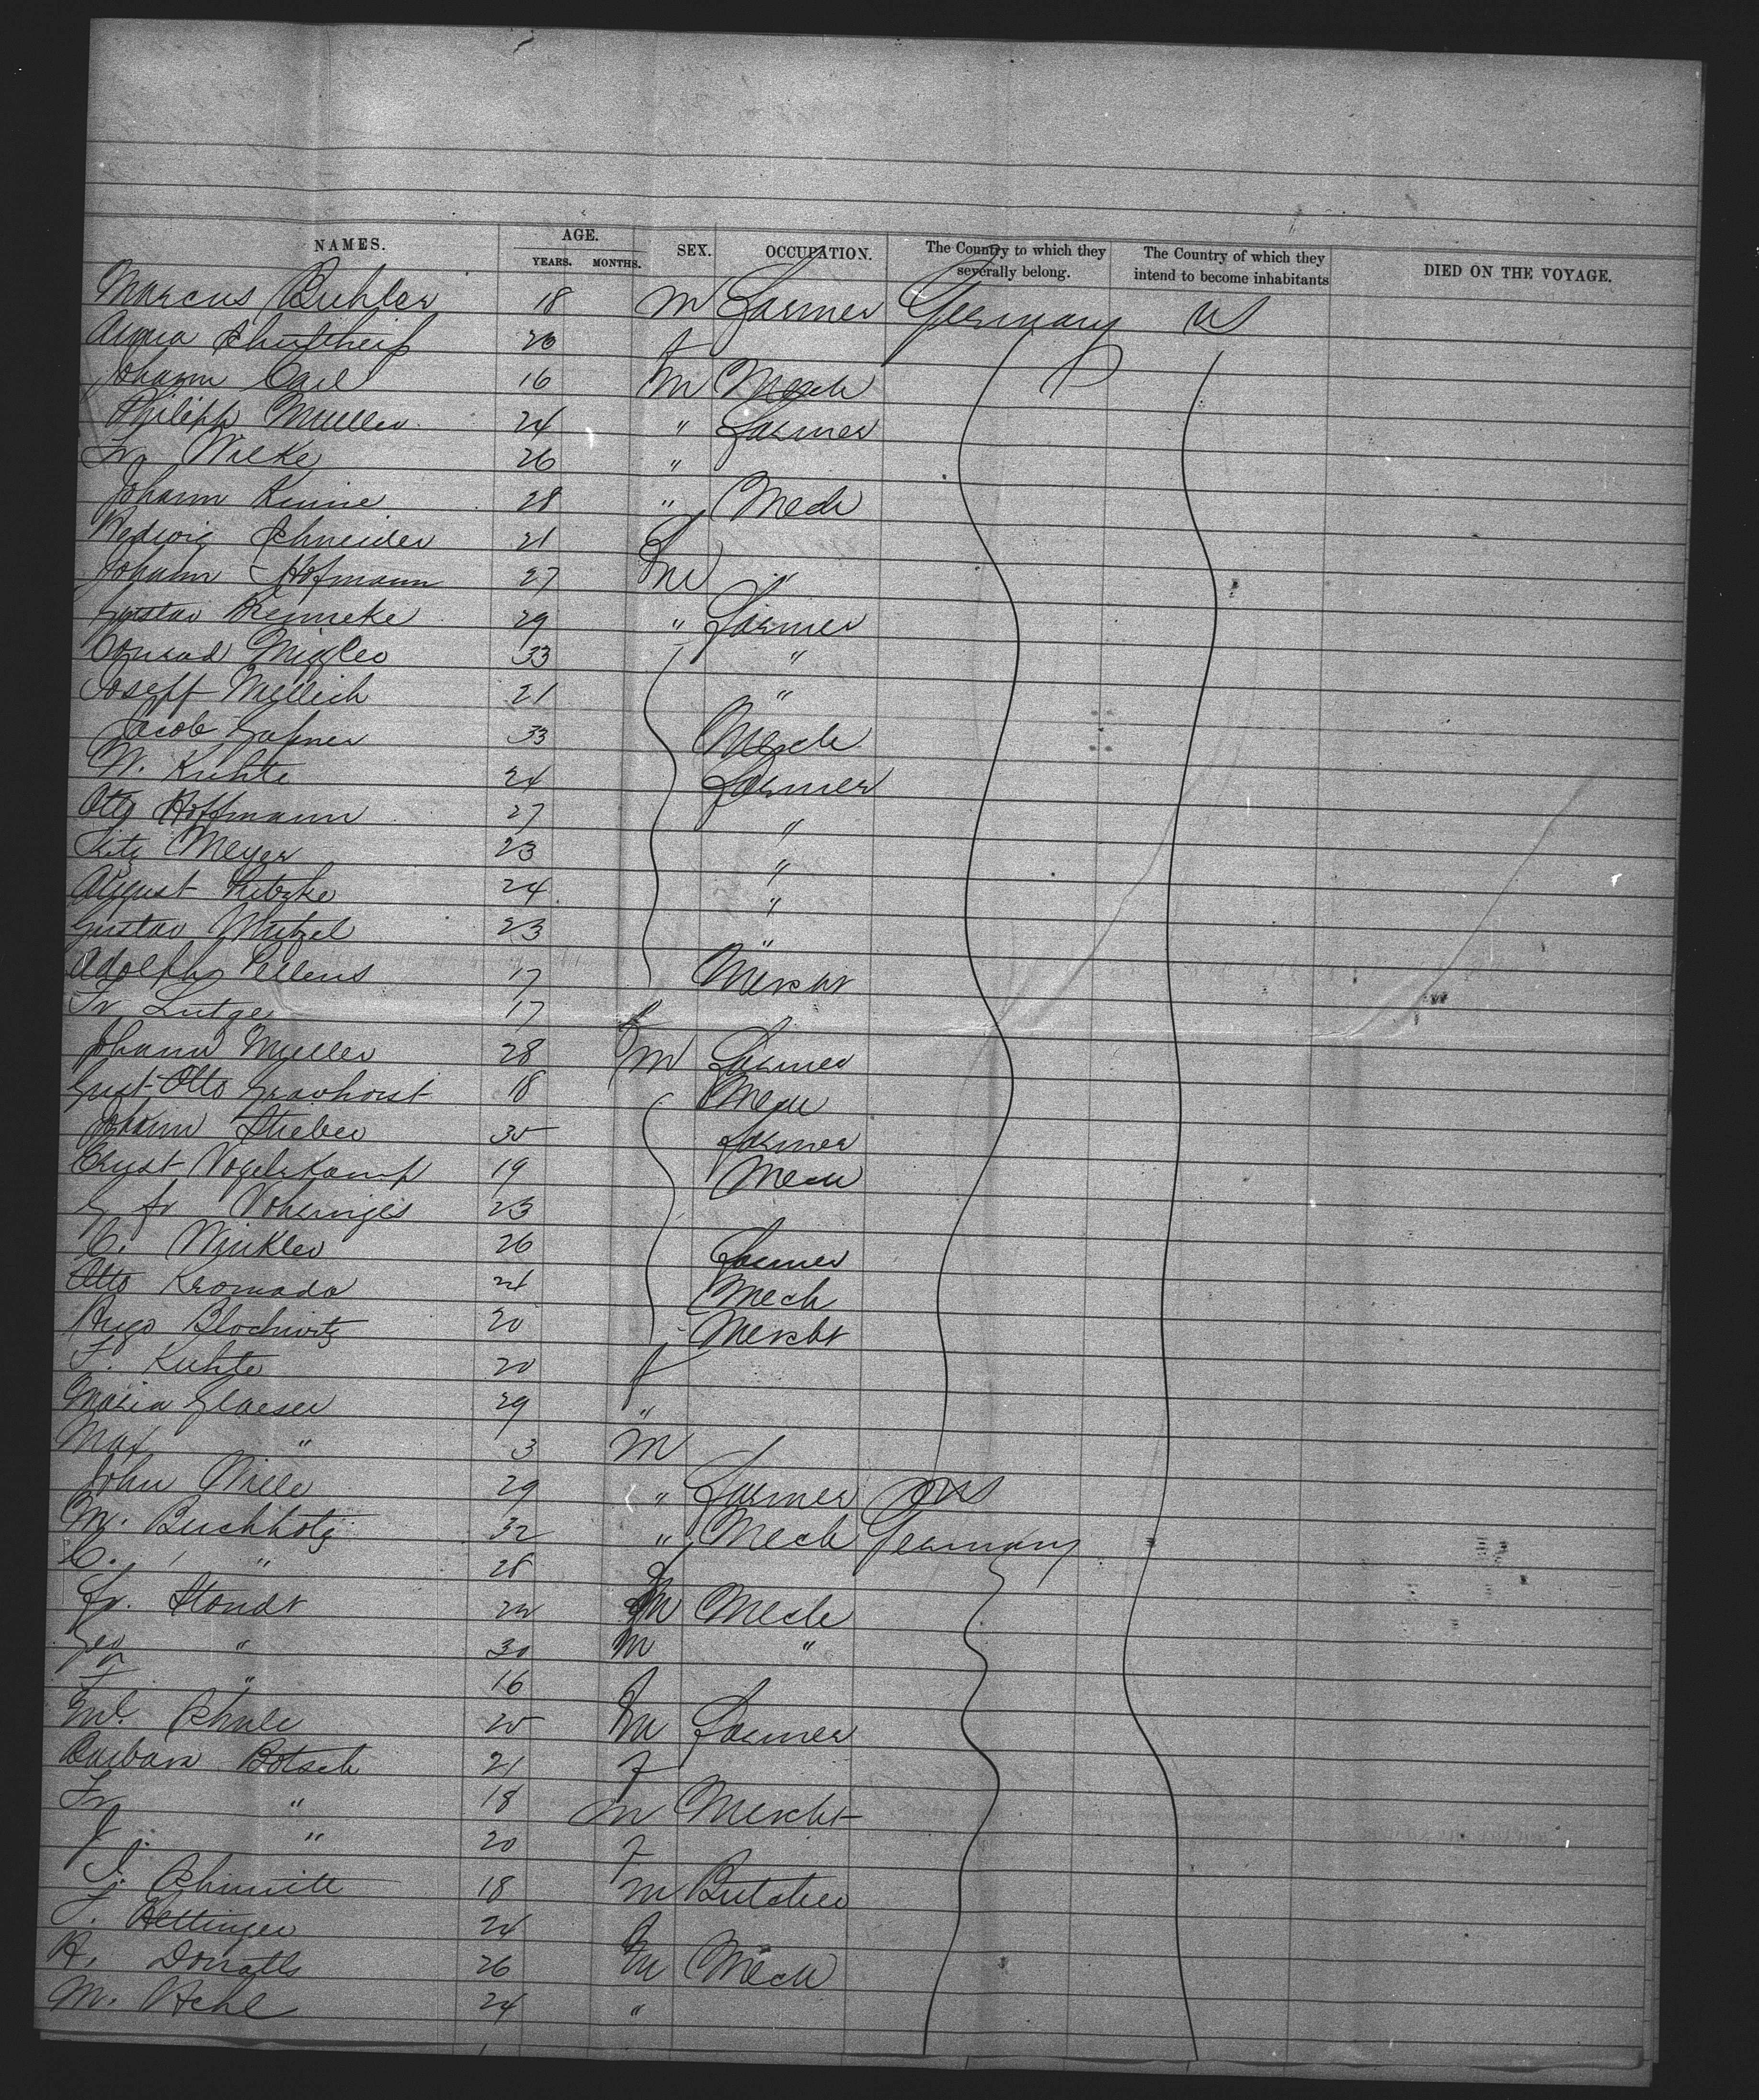 NAMES. AGE. SEX. OCCUPATION. The Country to which they severally belong. The Country of which they intend to become inhabitants DIED ON THE VOYAGE.
YEARS. MONTHS.
Marcus Buhler 18 m Farmer Germany US
Anna Schultheiß 20 f
Johann Carl 16 m Mech
Philipp Muller 24 " Farmer
Fr Wilke 26 "
Johann Kunne 28 " Mech
Hedwig Schneider 21 f
Johann Hofmann 27 m "
Gustav Henneke 29 " Farmer
Conrad Migler 33 "
Joseff Mellich 21 "
Jacob Gafner 33 Mech
W. Kuhte 24 Farmer
Otto Hoffmann 27 "
Fritz Meyer 23 "
August Litzke 24 "
Gustav Mutzel 23 "
Adolph Pellens 17 Mercht
Fr Lutge 17 f
Johann Muller 28 m Farmer
Gust Otto Gravhorst 18 Mech
Johann Stieber 35 Farmer
Ernst Vogelskamp 19 Mech
G Fr 23
C. Winkler 26 Farmer
Otto Kromada 24 Mech
Hugo Blochwitz 20 Mercht
F. Kuhte 20 f
Maria Glaeser 29 "
Max " 3 m
John Wille 29 " Farmer US
M. Buchholz 32 " Mech Germany
C. " 28 f
Fr. Standt 22 m Mech
Geo " 30 m "
F " 16 f
Ml. Schule 25 m Farmer
Barbara Botsch 21 f
Fr " 18 m Mercht
J. " 20 f
J. Schmitt 18 m Butcher
F. Hettinger 24 f
H. Donath 26 m Mech
M. Hehl 24 "